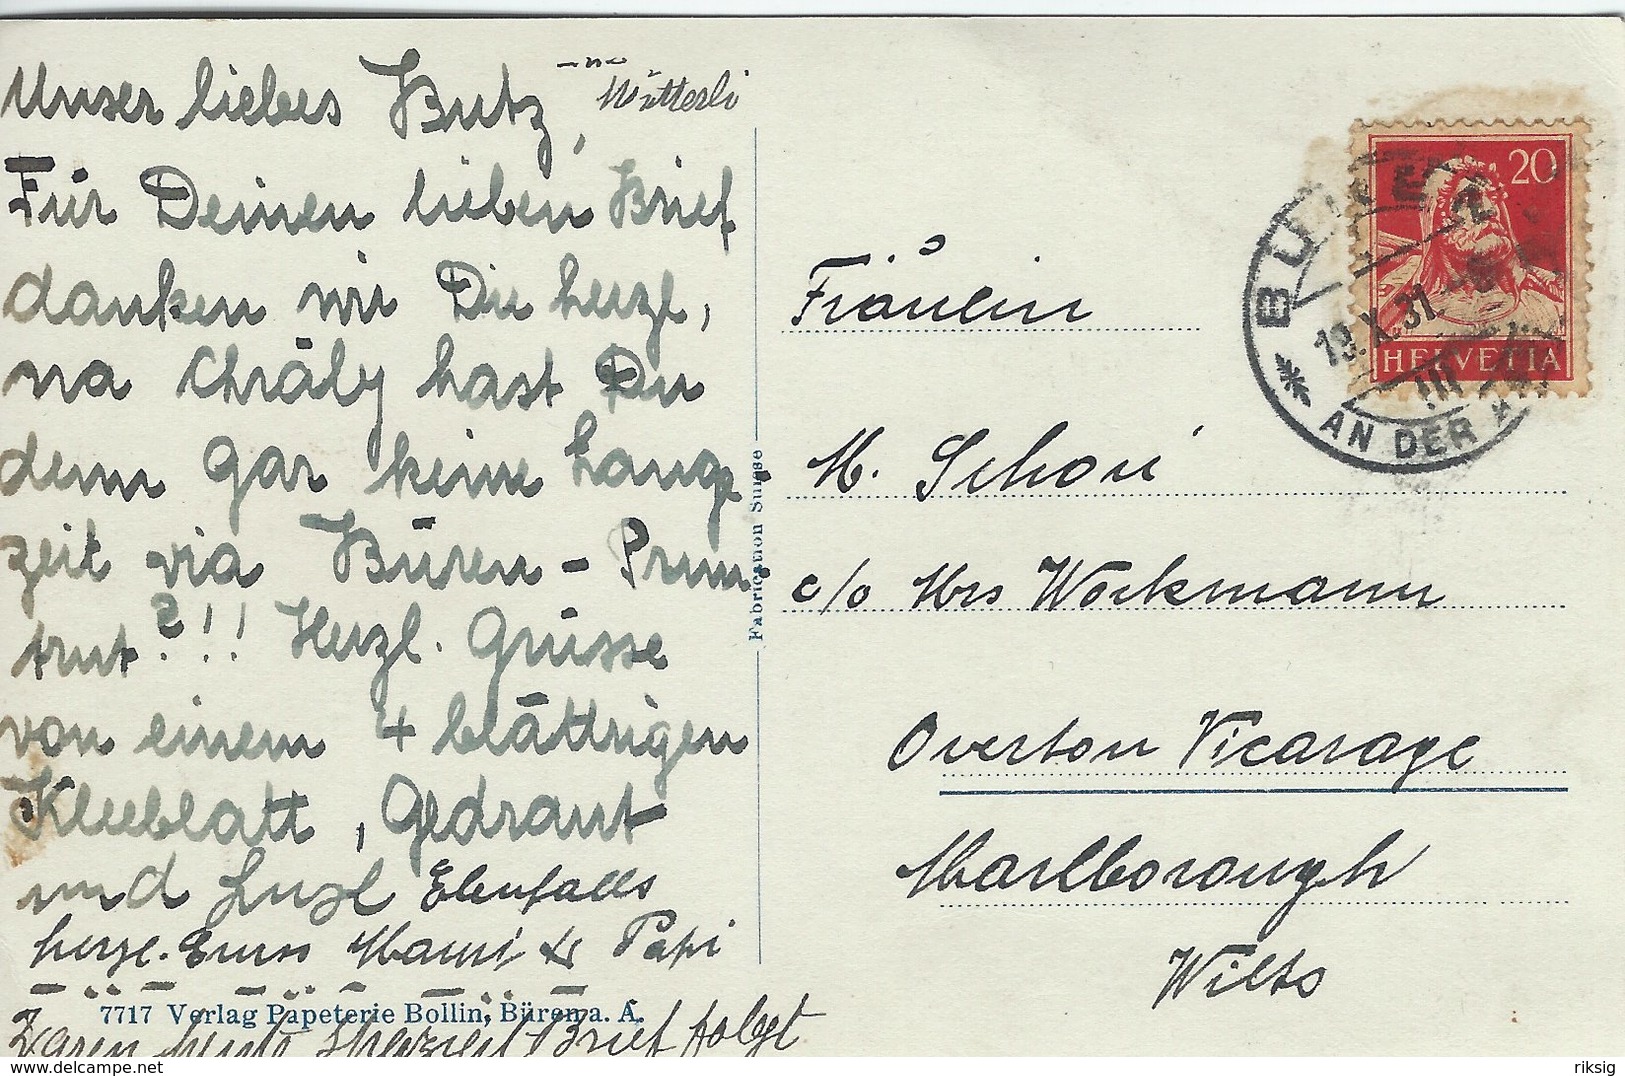 Unser liebes Butz,
Mutterli
Für Deinen lieben Brief
danken wir Dir herzl,
na Chräly hast Du
denn gar keine Lang-
zeit via Büren - Prun-
trut?!! Herzl. Grüsse
von einem 4 blättrigen
Kleeblatt, Gedraut
und Luzl Ebenfalls
herzl. Gruss Mami & Papi
waren heute Brief folgt
7717 Verlag Papeterie Bollin, Büren a. A.
Fabrication Suisse
20
HELVETIA
BÜREN
19.X.31
AN DER
Fräulein
M. Schori
c/o Mrs Workmann
Overton Vicarage
Marlborough
Wilts
riksig